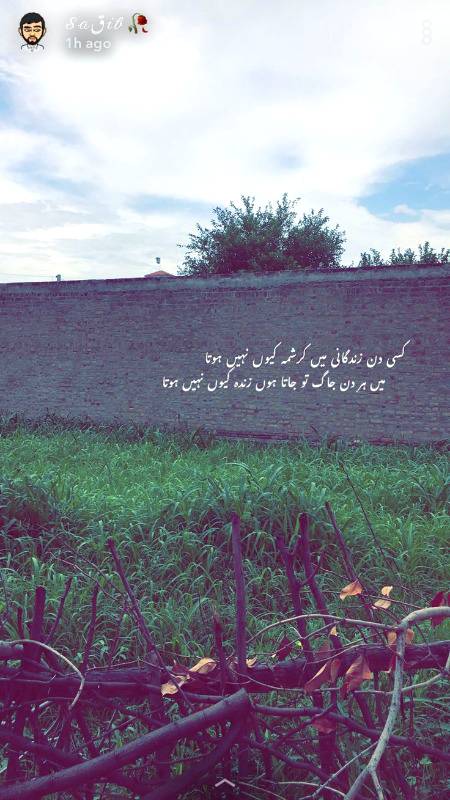 𝓢𝓪ق𝓲𝓫 🥀
1h ago
کسی دن زندگانی میں کرشمہ کیوں نہیں ہوتا
میں ہر دن جاگ تو جاتا ہوں زندہ کیوں نہیں ہوتا